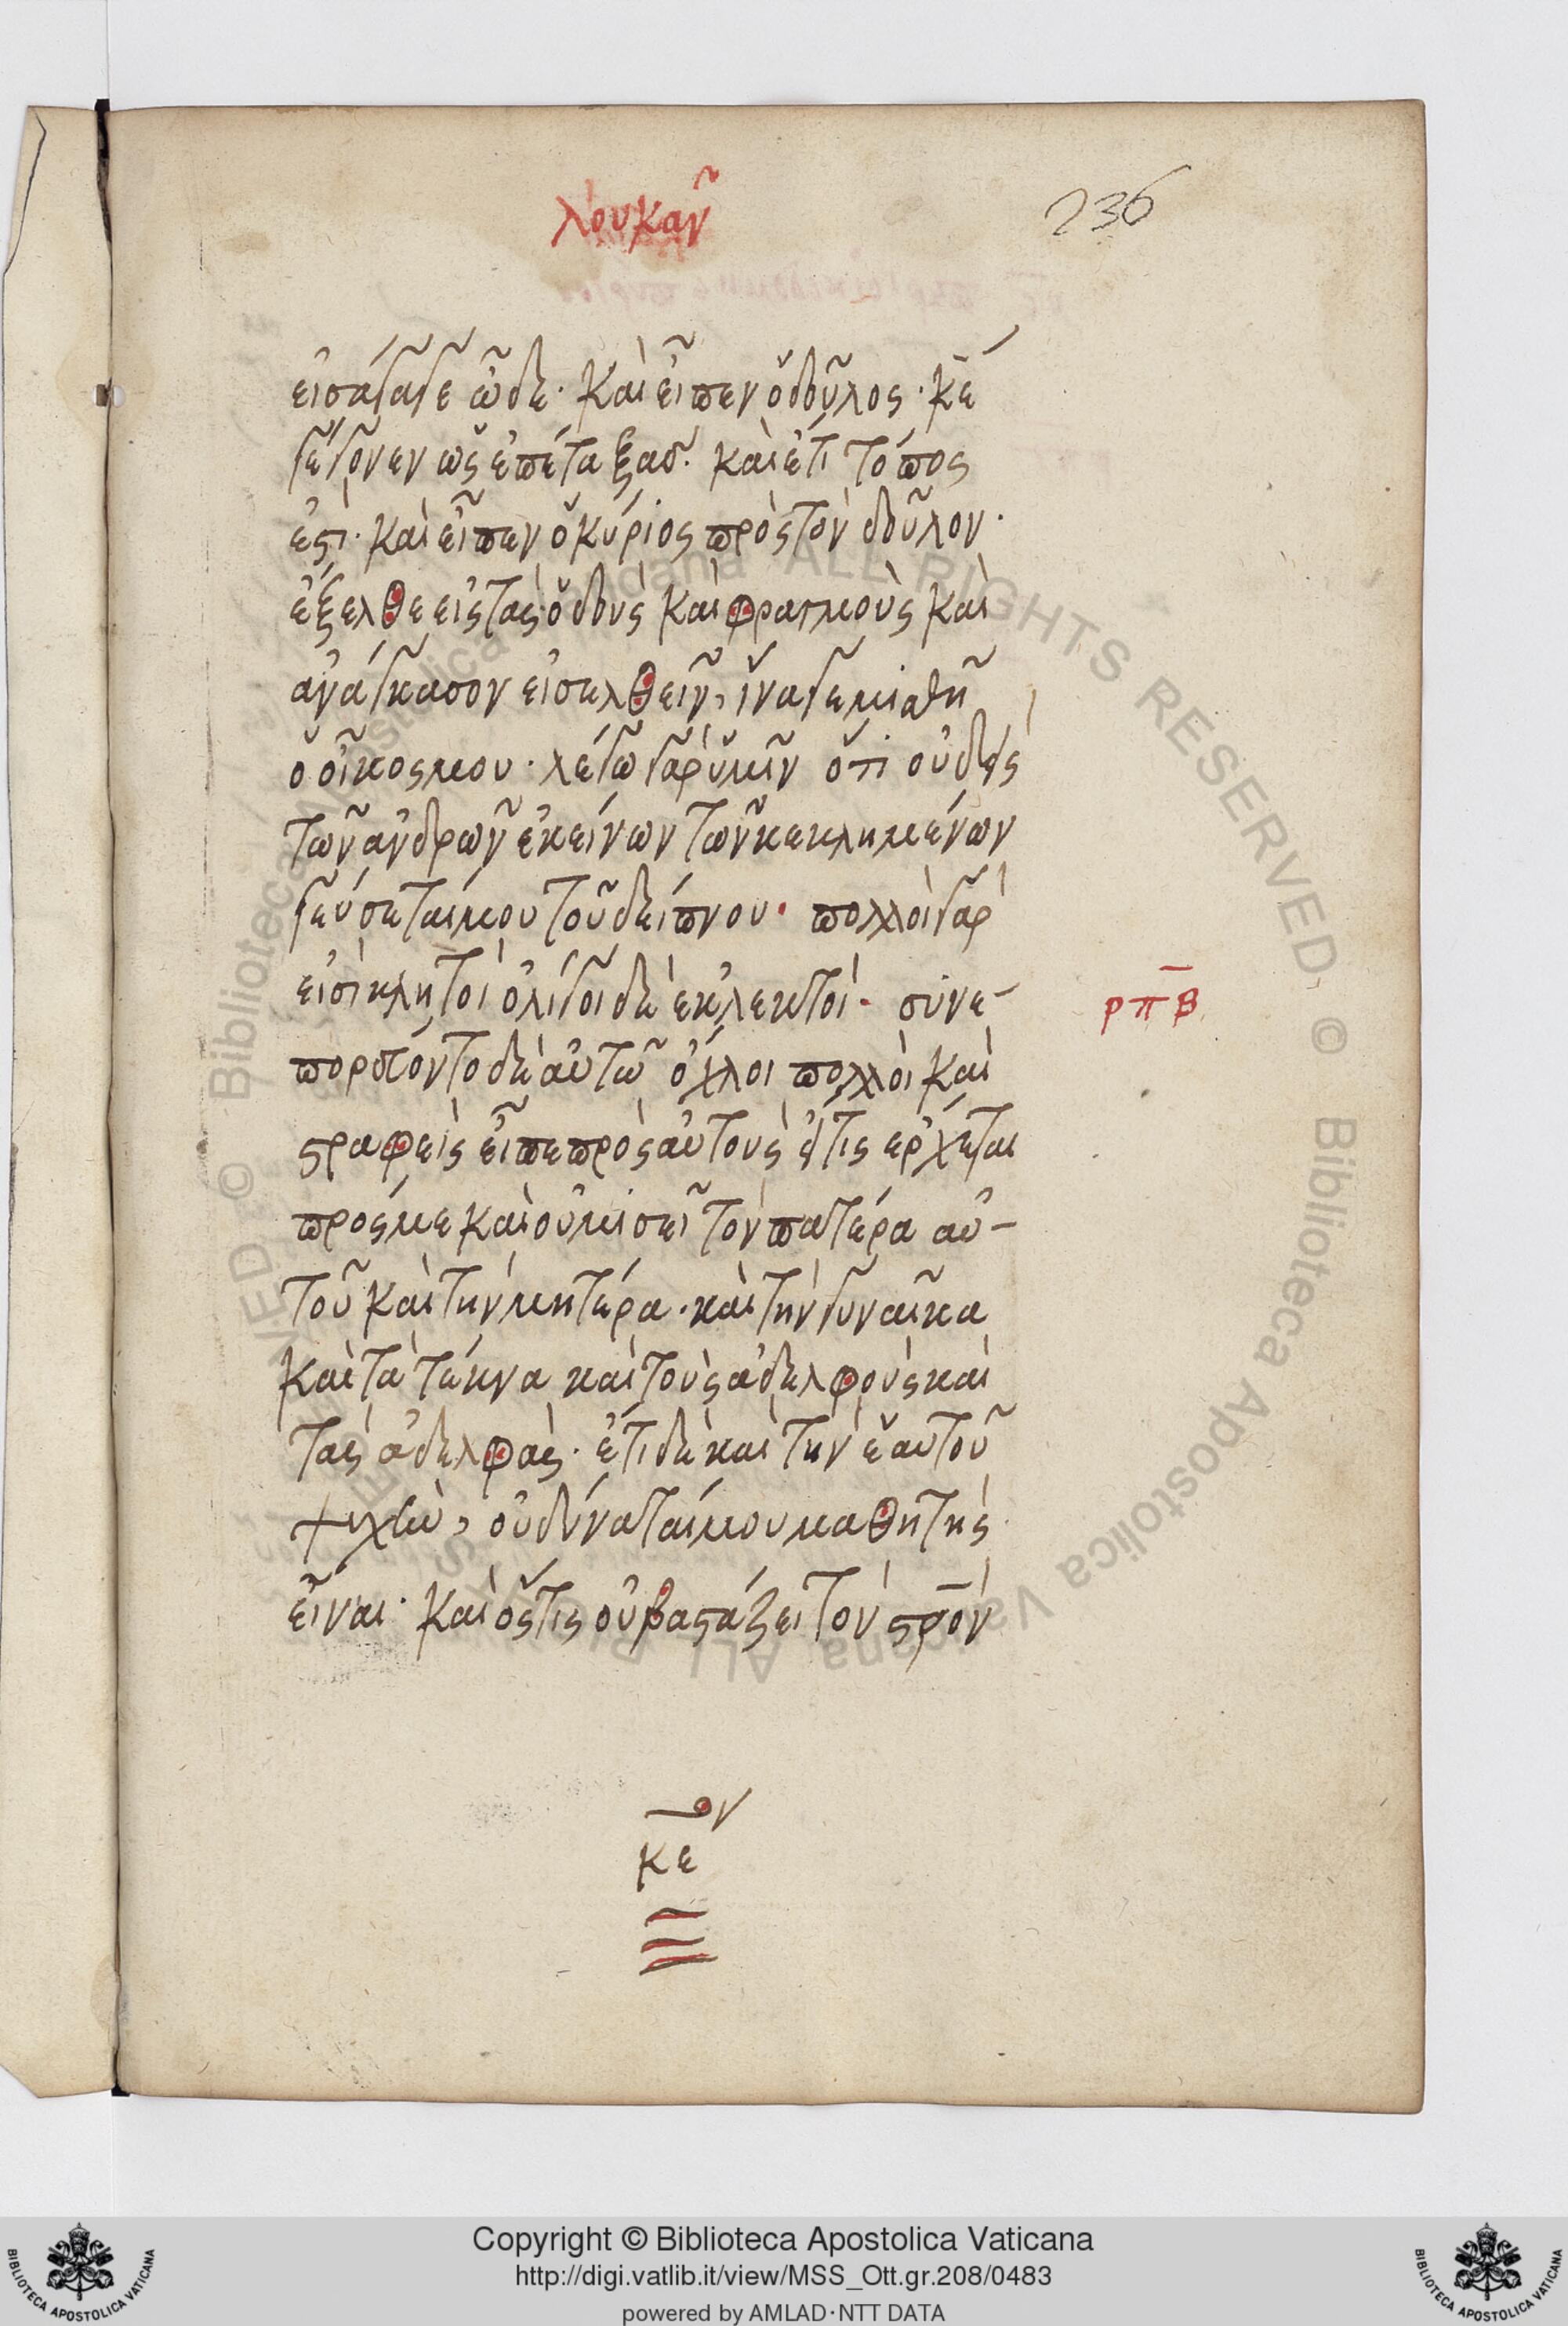 λουκᾶν
236
εἰσάγαγε ὧδε· καὶ εἶπεν ὁ δοῦλος· κ̅ε̅
γέγονεν ὡς ἐπέταξας· καὶ ἔτι τόπος
ἐστί· καὶ εἶπεν ὁ κύριος πρὸς τὸν δοῦλον·
ἔξελθε εἰς τὰς ὁδοὺς καὶ φραγμοὺς καὶ
ἀνάγκασον εἰσελθεῖν, ἵνα γεμισθῆ
ὁ οἶκος μου· λέγω γὰρ ὑμῖν ὅτι οὐδεὶς
τῶν ἀνδρῶν ἐκείνων τῶν κεκλημένων
γεύσεται μου τοῦ δείπνου· πολλοὶ γὰρ
εἰσὶ κλητοὶ ὀλίγοι δὲ ἐκλεκτοί· συνε-
ρ̅π̅β̅
πορεύοντο δὲ αὐτῶ ὄχλοι πολλοὶ καὶ
στραφεὶς εἶπε πρὸς αὐτοὺς εἴ τις ἔρχεται
πρός με καὶ οὐ μισεῖ τὸν πατέρα αὐ-
τοῦ καὶ τὴν μητέρα· καὶ τὴν γυναῖκα
καὶ τὰ τέκνα καὶ τοὺς ἀδελφοὺς καὶ
τὰς ἀδελφάς· ἔτι δὲ καὶ τὴν ἑαυτοῦ
ψυχὴν, οὐ δύναταί μου μαθητὴς
εἶναι· καὶ ὅστις οὐ βαστάζει τὸν σ̅ρ̅ὸν
ον
κε
Copyright © Biblioteca Apostolica Vaticana
http://digi.vatlib.it/view/MSS_Ott.gr.208/0483
powered by AMLAD·NTT DATA